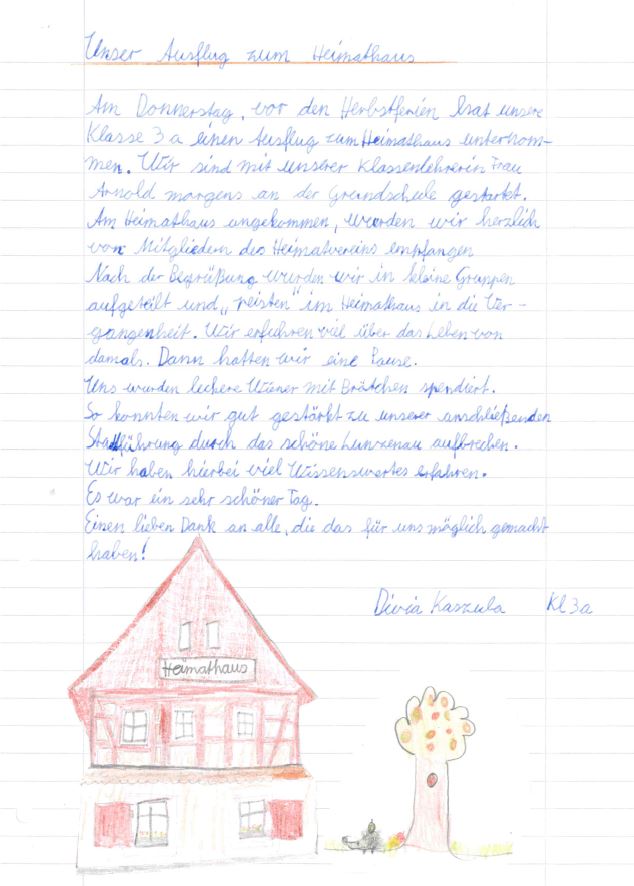 Unser Ausflug zum Heimathaus
Am Donnerstag, vor den Herbstferien hat unsere
Klasse 3a einen Ausflug zum Heimathaus unternom-
men. Wir sind mit unserer Klassenlehrerin Frau
Arnold morgens an der Grundschule gestartet.
Am Heimathaus angekommen, wurden wir herzlich
von Mitgliedern des Heimatvereins empfangen
Nach der Begrüßung wurden wir in kleine Gruppen
aufgeteilt und „reisten" im Heimathaus in die Ver-
gangenheit. Wir erfuhren viel über das Leben von
damals. Dann hatten wir eine Pause.
Uns wurden leckere Wiener mit Brötchen spendiert.
So konnten wir gut gestärkt zu unserer anschließenden
Stadtführung durch das schöne Lunzenau aufbrechen.
Wir haben hierbei viel Wissenswertes erfahren.
Es war ein sehr schöner Tag.
Einen lieben Dank an alle, die das für uns möglich gemacht
haben!
Kaszula Kl 3a
Heimathaus